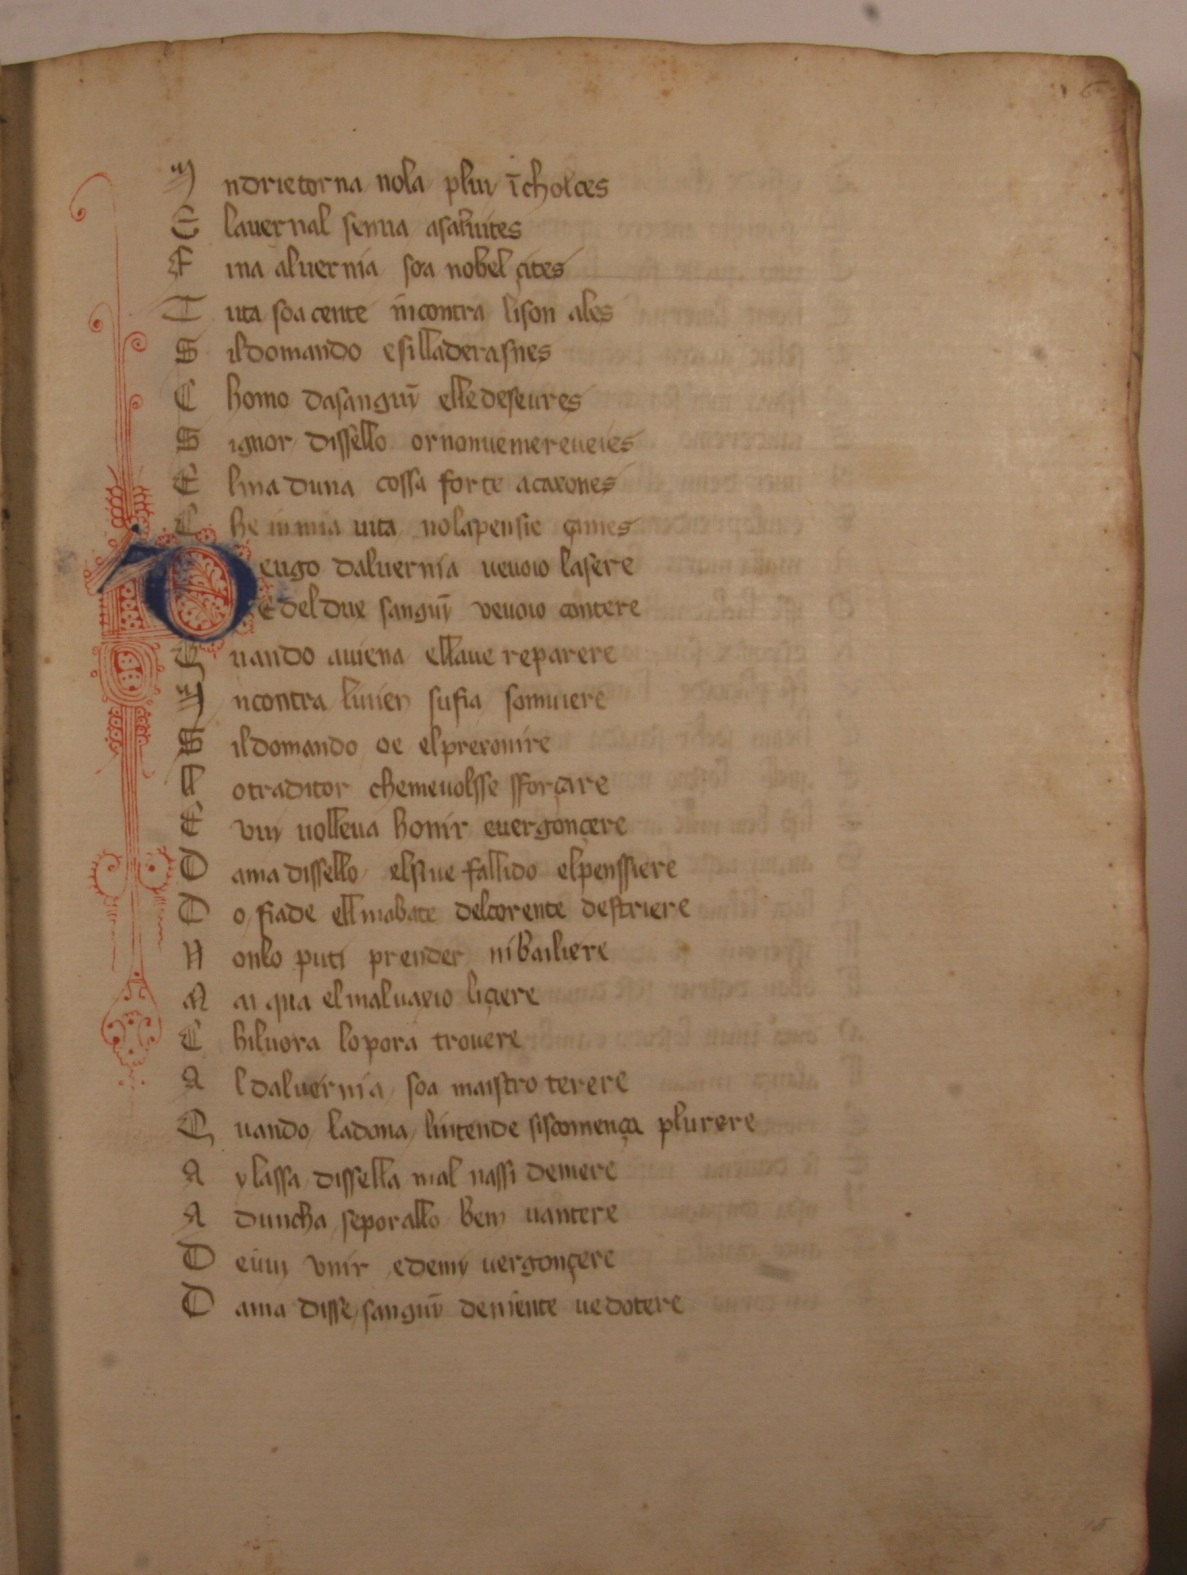 I ndrietorna nola plui īcholces
E lauernal senua asaluites
F ina aluernia soa nobel çites
T uta soa cente incontra lison ales
S il domando e silladerasnes
C homo dasanguī elle deseures
S ignor dissello or non ue mereueies
E lina duna cossa forte acaxones
C he in mia uita nolapensie çimes
D eugo daluernia ueuoio lasere
E del due sanguī veuoio contere
Q uando auiena ellaue reparere
I ncontra liuien sufia somuiere
S il domando oe el prexonire
L o traditor chemeuolsse fforçare
E vui uolleua honir euergonçere
D ama dissello elsiue fallido elpenssiere
D o fiade ell mabate delcorente destriere
N onlo puti prender ni bailiere
M ai qua el maluaxio liçiere
C hiluora lo pora trouere
A l daluernia soa maistro terere
Q uando ladona lintende siscomença plurere
A y lassa dissella mal nassi de mere
A duncha seporallo ben uantere
D euui vnir e demi uergonçere
D ama disse sanguī de niente ue dotere